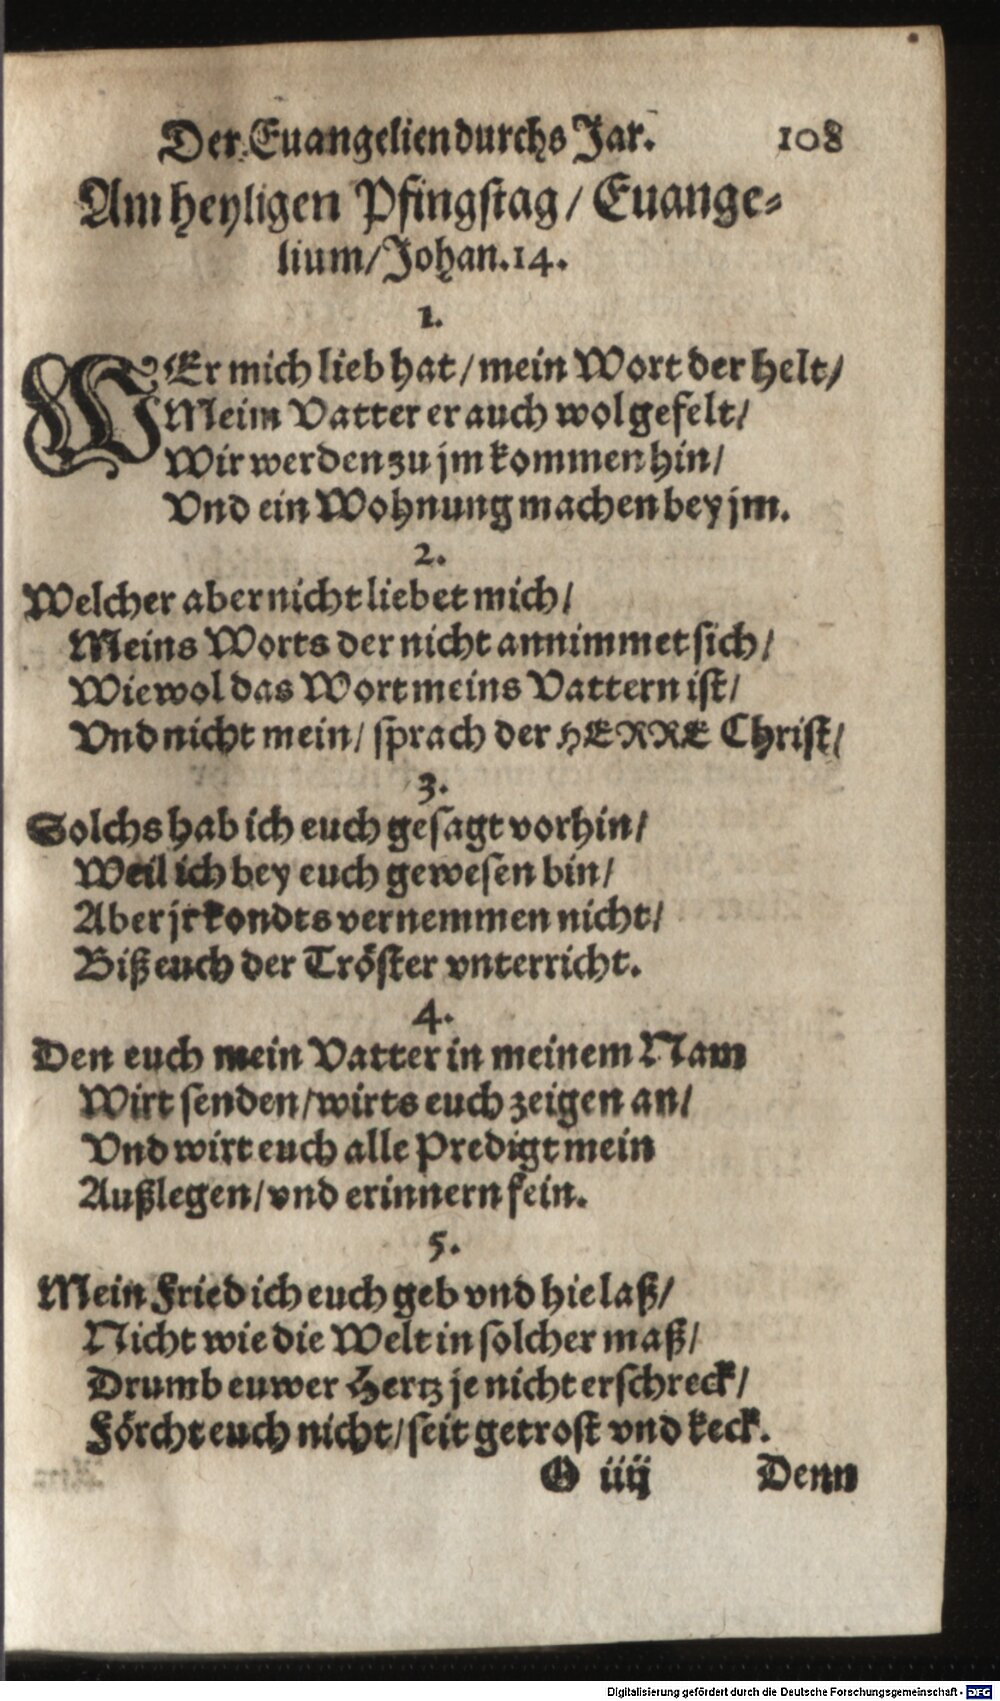 Der Euangelien durchs Jar. 108
Am heyligen Pfingstag / Euange-
lium / Johan. 14.
1.
WEr mich lieb hat / mein Wort der helt /
Meim Vatter er auch wol gefelt /
Wir werden zu jm kommen hin /
Vnd ein Wohnung machen bey jm.
2.
Welcher aber nicht liebet mich /
Meins Worts der nicht annimmet sich /
Wiewol das Wort meins Vattern ist /
Vnd nicht mein / sprach der HERRE Christ /
3.
Solchs hab ich euch gesagt vorhin /
Weil ich bey euch gewesen bin /
Aber jr kondts vernemmen nicht /
Biß euch der Tröster vnterricht.
4.
Den euch mein Vatter in meinem Nam
Wirt senden / wirts euch zeigen an /
Vnd wirt euch alle Predigt mein
Außlegen / vnd erinnern fein.
5.
Mein Fried ich euch geb vnd hie laß /
Nicht wie die Welt in solcher maß /
Drumb euwer Hertz je nicht erschreck /
Förcht euch nicht / seit getrost vnd keck.
O iiij Denn
Digitalisierung gefördert durch die Deutsche Forschungsgemeinschaft - DFG